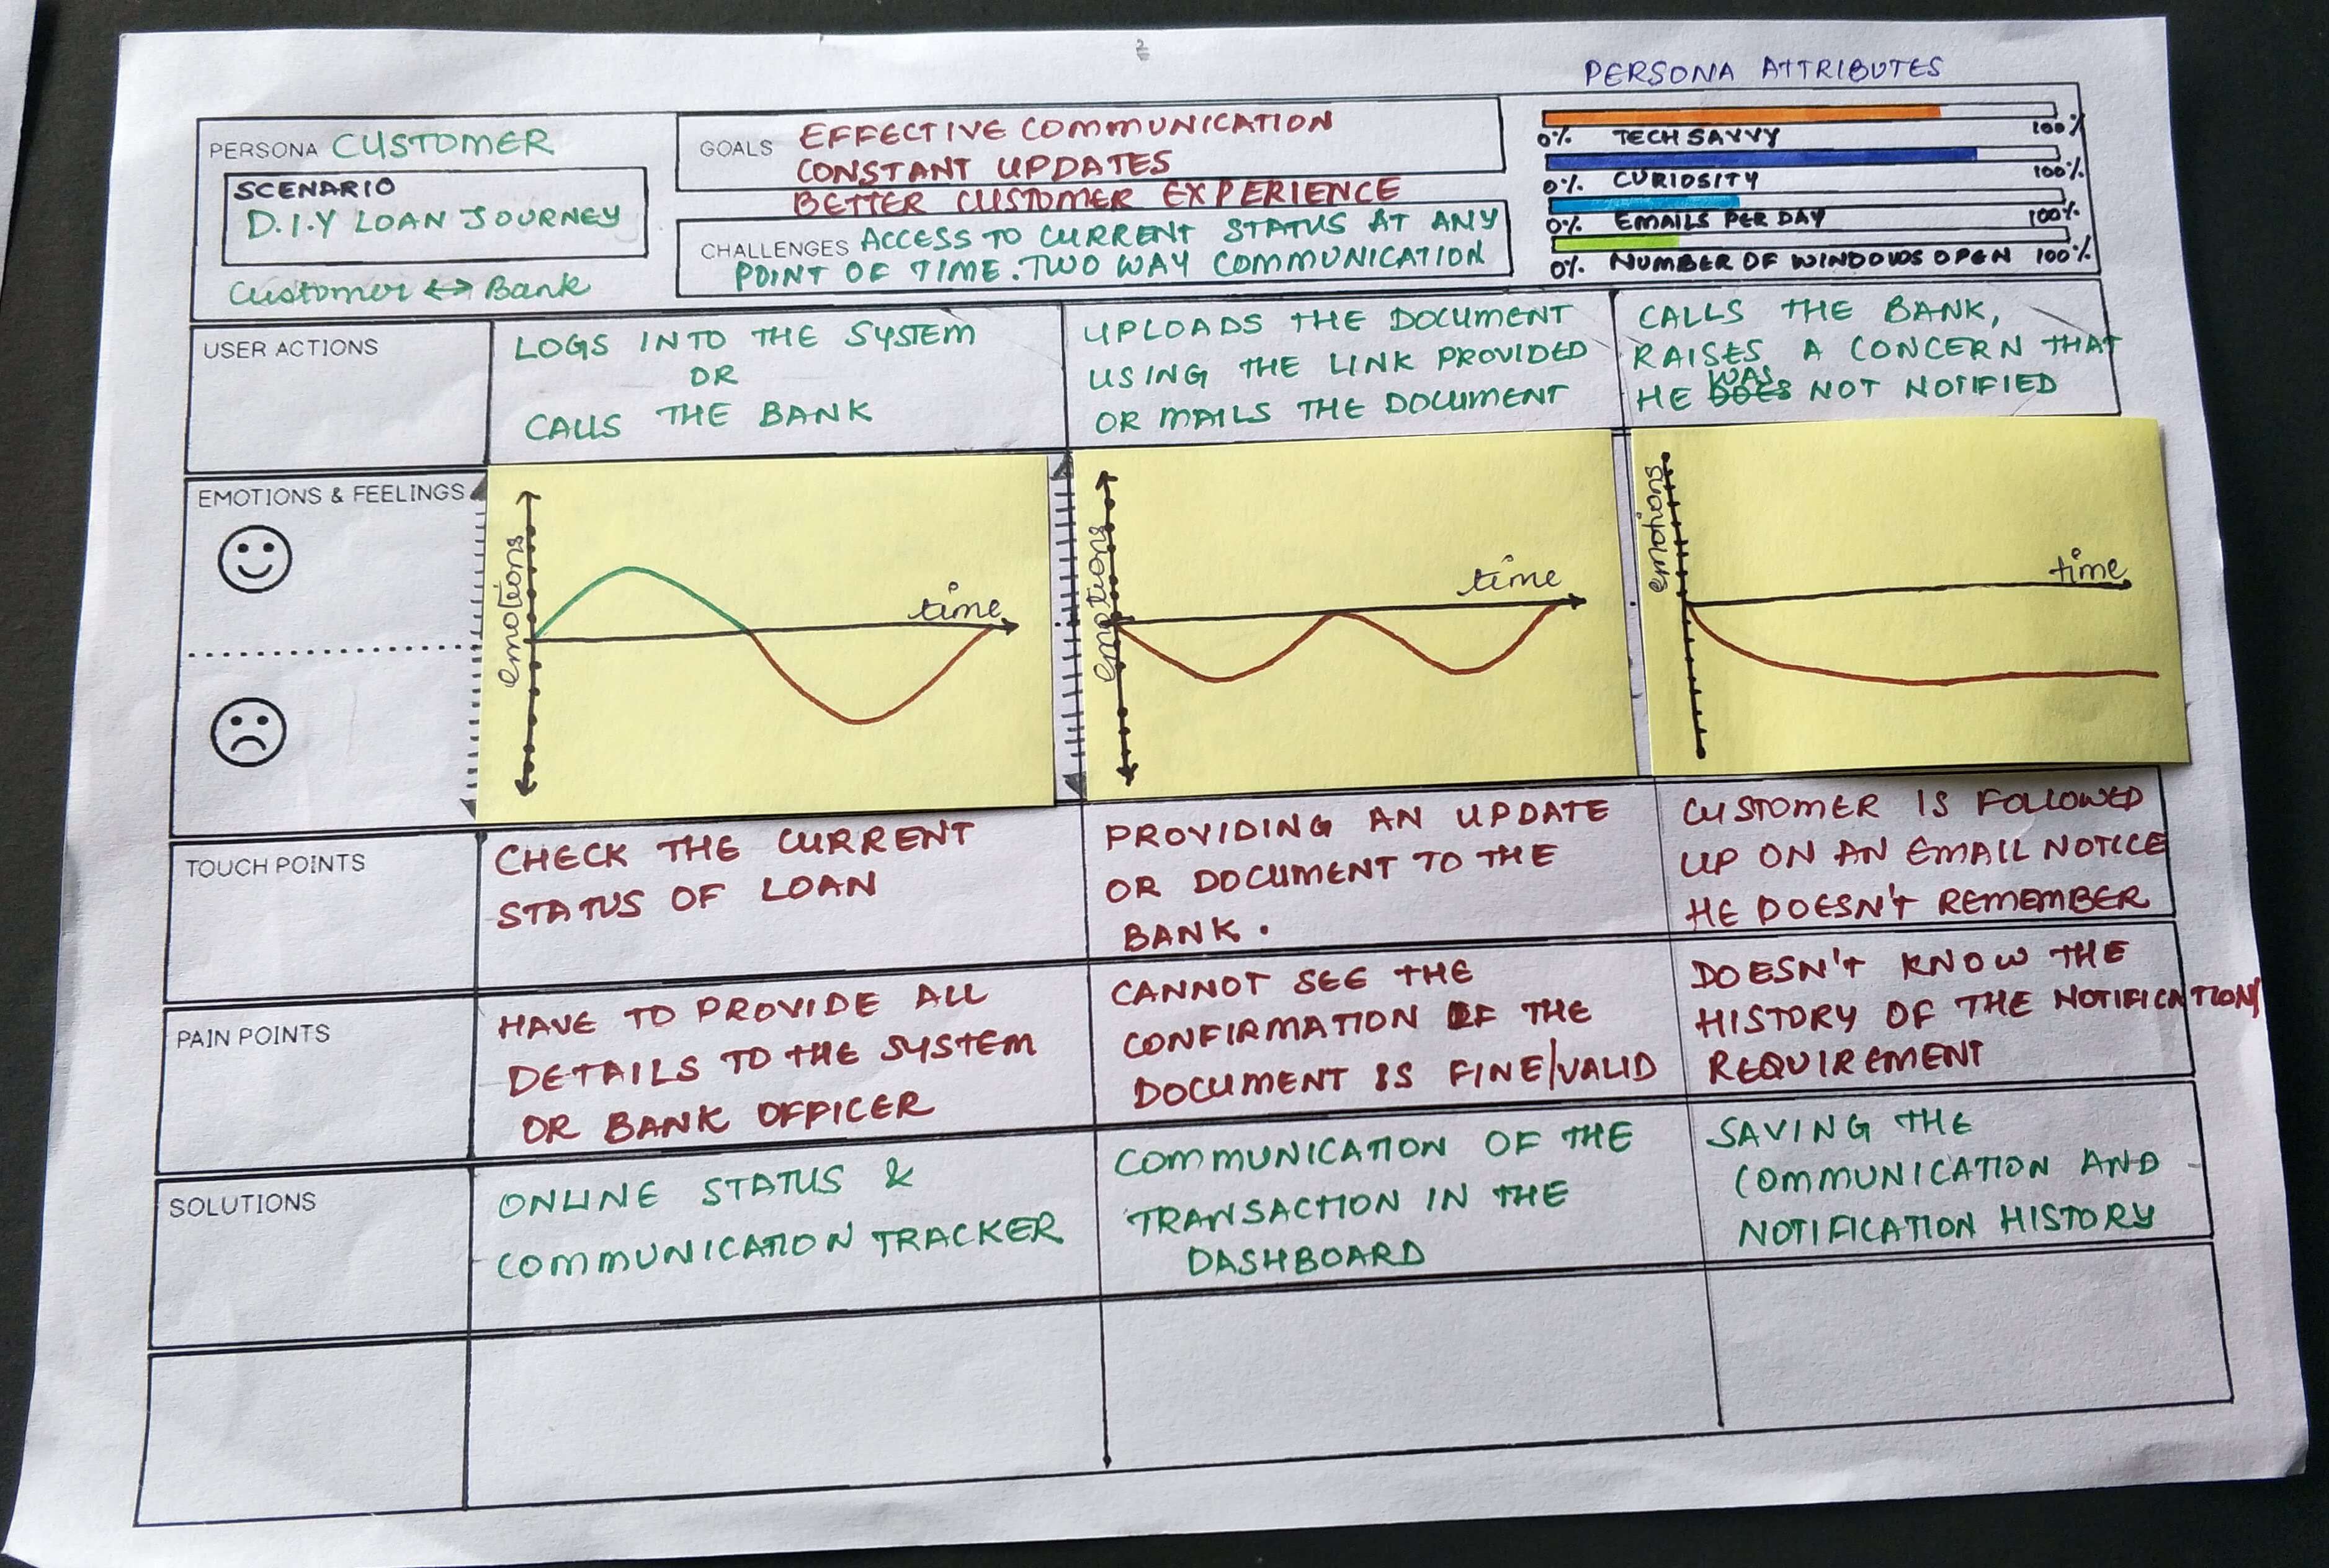 2
PERSONA ATTRIBUTES
PERSONA CUSTOMER
SCENARIO
D.I.Y LOAN JOURNEY
Customer ↔ Bank
GOALS EFFECTIVE COMMUNICATION
CONSTANT UPDATES
BETTER CUSTOMER EXPERIENCE
CHALLENGES ACCESS TO CURRENT STATUS AT ANY
POINT OF TIME. TWO WAY COMMUNICATION
0% TECH SAVVY 100%
0% CURIOSITY 100%
0% EMAILS PER DAY 100%
0% NUMBER OF WINDOWS OPEN 100%
USER ACTIONS
LOGS INTO THE SYSTEM
OR
CALLS THE BANK
UPLOADS THE DOCUMENT
USING THE LINK PROVIDED
OR MAILS THE DOCUMENT
CALLS THE BANK,
RAISES A CONCERN THAT
WAS
HE DOES NOT NOTIFIED
EMOTIONS & FEELINGS
emotions
time
emotions
time
emotions
time
TOUCH POINTS
CHECK THE CURRENT
STATUS OF LOAN
PROVIDING AN UPDATE
OR DOCUMENT TO THE
BANK.
CUSTOMER IS FOLLOWED
UP ON AN EMAIL NOTICE
HE DOESN'T REMEMBER
PAIN POINTS
HAVE TO PROVIDE ALL
DETAILS TO THE SYSTEM
OR BANK OFFICER
CANNOT SEE THE
CONFIRMATION OF THE
DOCUMENT IS FINE/VALID
DOESN'T KNOW THE
HISTORY OF THE NOTIFICATION/
REQUIREMENT
SOLUTIONS
ONLINE STATUS &
COMMUNICATION TRACKER
COMMUNICATION OF THE
TRANSACTION IN THE
DASHBOARD
SAVING THE
COMMUNICATION AND
NOTIFICATION HISTORY